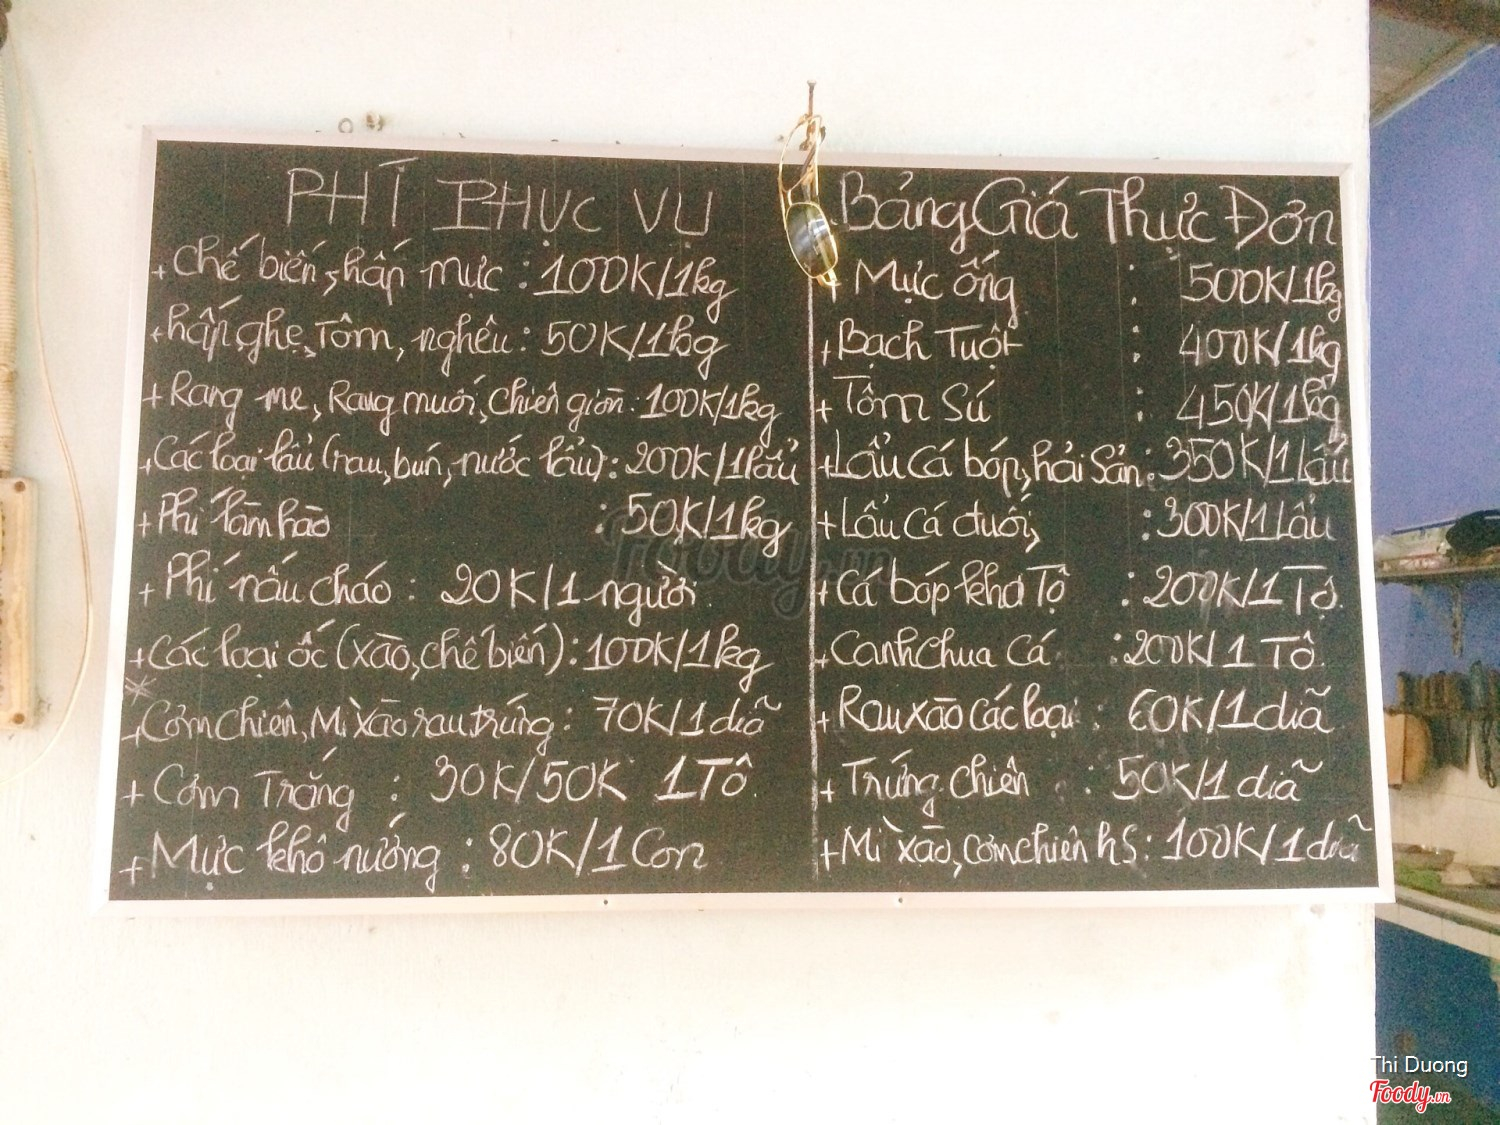 PHÍ PHỤC VỤ
+ Chế biến, hấp mực : 100K/1kg
+ hấp ghẹ, Tôm, nghêu : 50K/1kg
+ Rang me, Rang muối, chiên giòn : 100K/1kg
+ Các loại lẩu (rau, bún, nước lẩu) : 200K/1lẩu
+ Phí làm hào : 50K/1kg
+ Phí nấu cháo : 20K/1 người
+ Các loại ốc (xào, chế biến) : 100K/1kg
+ Cơm chiên, Mì xào rau trứng : 70K/1 diã
+ Cơm Trắng : 30K/50K 1 Tô
+ Mực khô nướng : 80K/1 Con
Bảng Giá Thực Đơn
+ Mực ống : 500K/1kg
+ Bạch Tuột : 400K/1kg
+ Tôm Sú : 450K/1kg
+ Lẩu Cá bóp, hải Sản : 350K/1 Lẩu
+ Lẩu Cá đuối, : 300K/1 Lẩu
+ Cá bóp kho Tộ : 200K/1 Tộ.
+ Canh chua Cá : 200K/1 Tô.
+ Rau xào các loại : 60K/1 diã
+ Trứng chiên : 50K/1 diã
+ Mì xào, cơm chiên hS : 100K/1 diã
Foody.vn
Thi Duong
Foody.vn